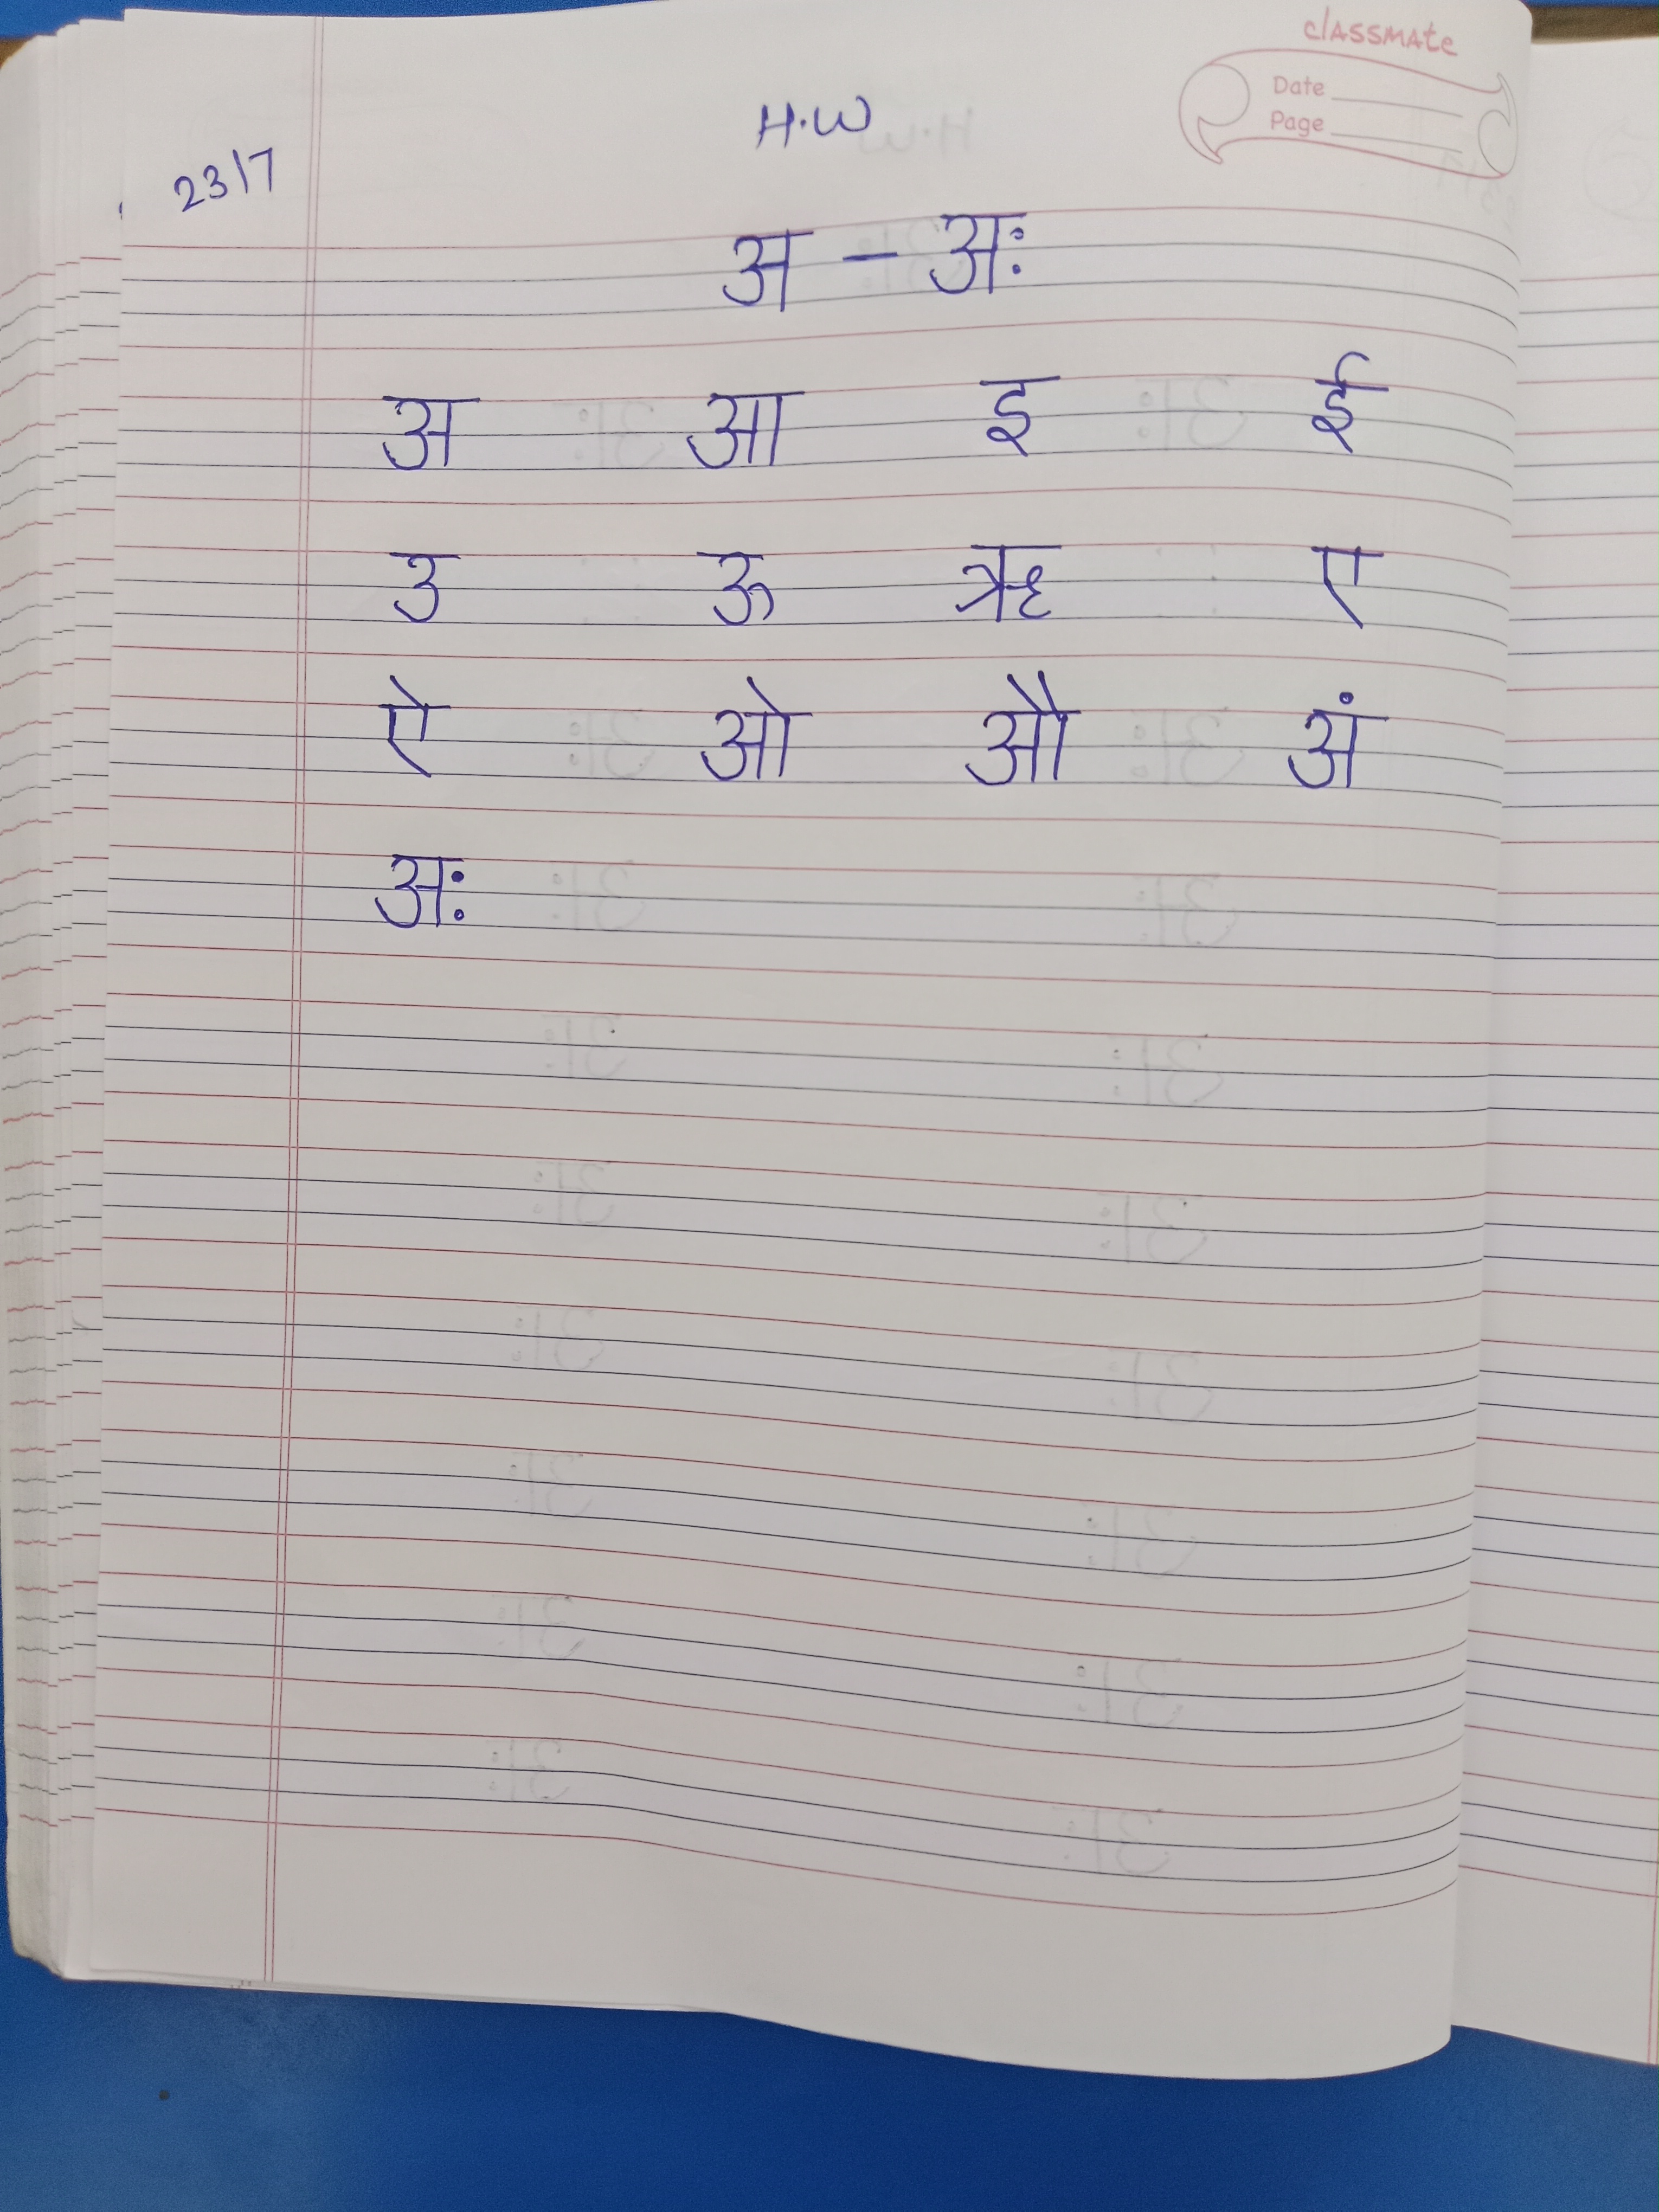 classmate
Date
Page
H.W
23/7
अ - अः
अ आ इ ई
उ ऊ ऋ ए
ऐ ओ औ अं
अः